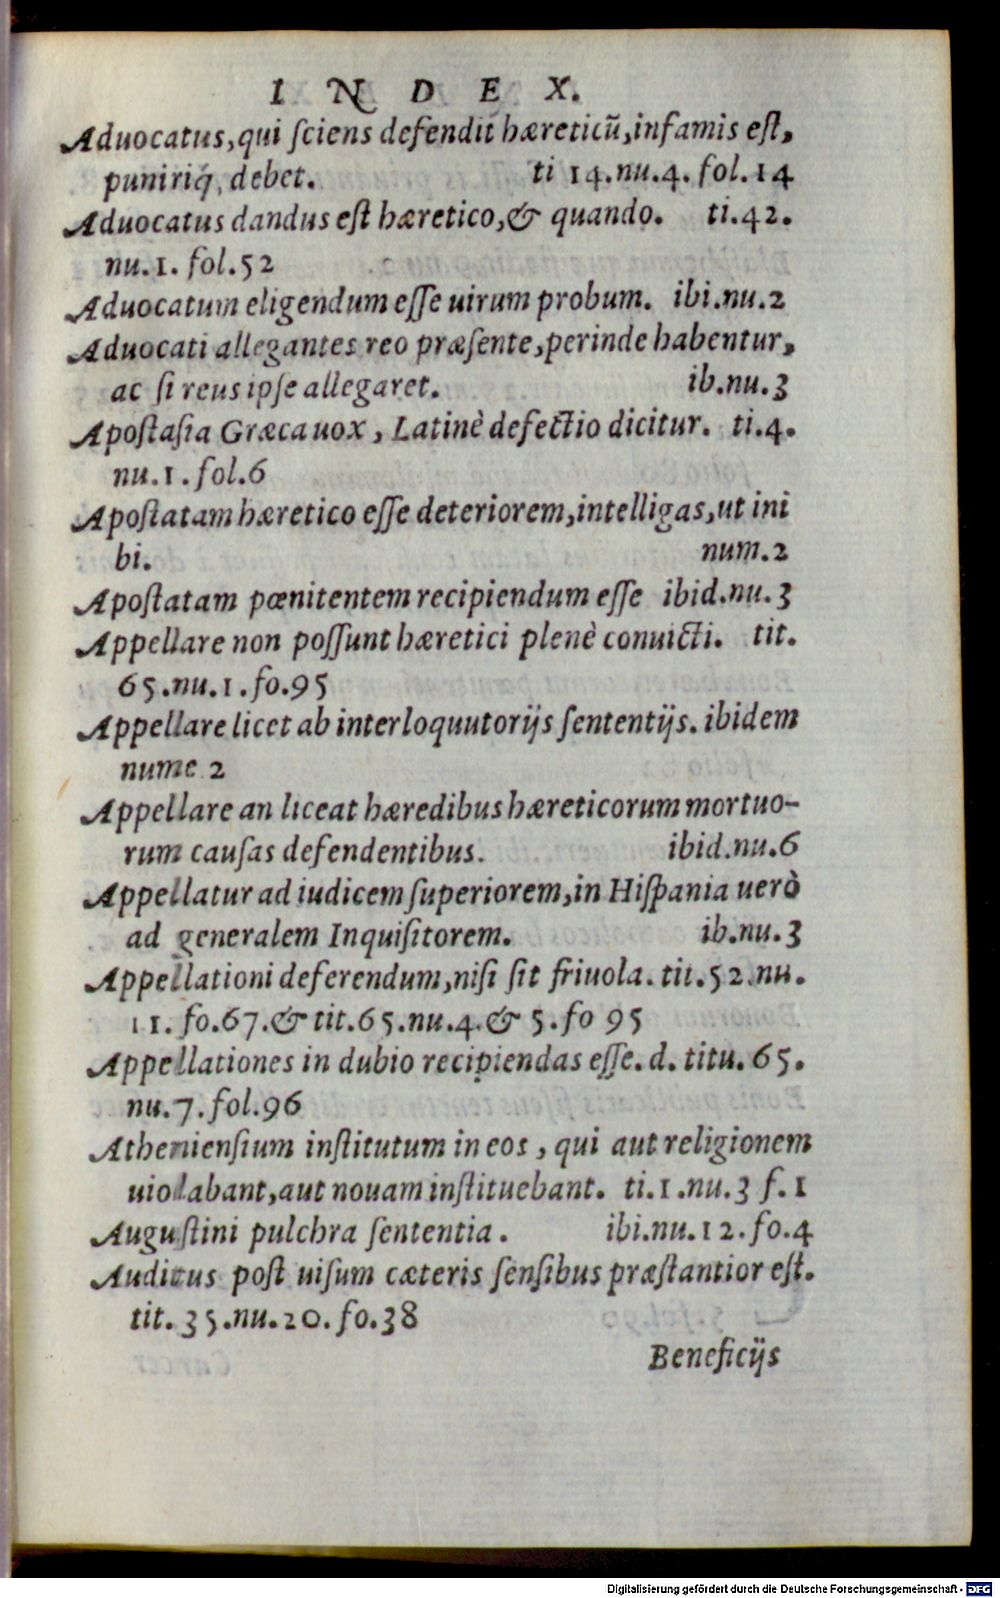 INDEX.
Aduocatus, qui sciens defendit hæreticũ, infamis est,
puniriq́, debet. ti 14. nu. 4. fol. 14
Aduocatus dandus est hæretico, & quando. ti. 42.
nu. 1. fol. 52
Aduocatum eligendum esse uirum probum. ibi. nu. 2
Aduocati allegantes reo præsente, perinde habentur,
ac si reus ipse allegaret. ib. nu. 3
Apostasia Græca uox, Latinè defectio dicitur. ti. 4.
nu. 1. fol. 6
Apostatam hæretico esse deteriorem, intelligas, ut ini
bi. num. 2
Apostatam pœnitentem recipiendum esse ibid. nu. 3
Appellare non possunt hæretici plenè conuicti. tit.
65. nu. 1. fo. 95
Appellare licet ab interloquutorijs sententijs. ibidem
nume 2
Appellare an liceat hæredibus hæreticorum mortuo-
rum causas defendentibus. ibid. nu. 6
Appellatur ad iudicem superiorem, in Hispania uerò
ad generalem Inquisitorem. ib. nu. 3
Appellationi deferendum, nisi sit friuola. tit. 52. nu.
11. fo. 67. & tit. 65. nu. 4. & 5. fo 95
Appellationes in dubio recipiendas esse. d. titu. 65.
nu. 7. fol. 96
Atheniensium institutum in eos, qui aut religionem
uiolabant, aut nouam instituebant. ti. 1. nu. 3 f. 1
Augustini pulchra sententia. ibi. nu. 12. fo. 4
Auditus post uisum cæteris sensibus præstantior est.
tit. 35. nu. 20. fo. 38
Beneficijs
Digitalisierung gefördert durch die Deutsche Forschungsgemeinschaft - DFG